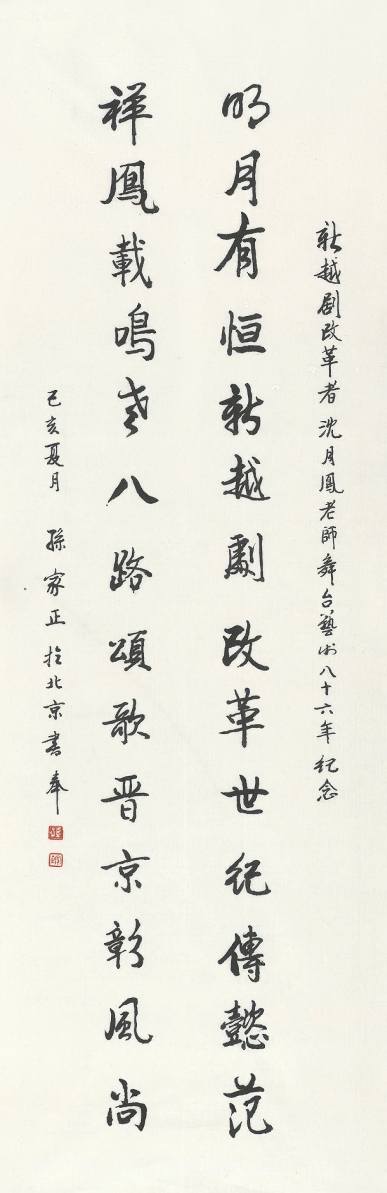 新越剧改革者沈月鳳老師舞台藝術八十六年纪念
明月有恒新越劇改革世纪傳懿范
祥鳳載鳴老八路頌歌晋京彰風尚
己亥夏月 孫家正於北京書奉